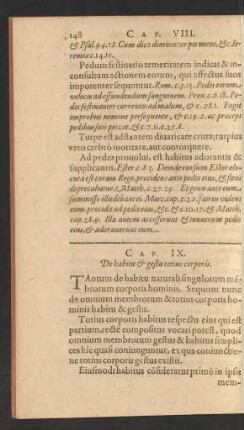 148 CAP. VIII.
& Psal. 94.18. Cum dico dimovetur pes meus, &c. Ieremiæ 14.10.
Pedum festinatio temeritatem indicat & inconsultam actionem eorum, qui affectus suos
impotenter sequuntur. Rom. c. 3.15. Pedes eorum
veloces ad effundendum sanguinem. Prov. c. 6.18. Pedes festinantes currentes ad malum, & c. 28.1. Fugit
improbus nemine persequente, & c. 19.2. ac præceps
pedibus suis peccat, & c. 7.11. c. 25.8.
Turpe est adstantem divaricare crura; turpius
vero crebrò motitare, aut contorquere.
Ad pedes pronolui, est habitus adorantis &
supplicantis. Ester c. 8.3. Deinde rursum Ester locuta est coram Rege, procidens ante pedes eius, & flens
deprecabatur. c. Matth. c. 27.29. Et genu ante eum
summisso illudebant ei Marc. cap. 5.22.
eum procidit ad pedes eius, &c. & c. 10.17. & Matth.
cap. 28.9. Illæ autem accesserunt & tenuerunt pedes
eius, & adoraverunt eum.
CAP. IX.
De habitu & gestu totius corporis.
TAntum de habitu naturali singulorum membrorum corporis hominis. Sequitur nunc
de omnium membrorum & totius corporis hominis habitu & gestu.
Totius corporis habitus respectu eius qui est
partium, rectè compositus vocari potest, quod
omnium membrorum gestus & habitus simplices hîc quasi coniunguntur, ex qua coniunctione totius corporis gestus existit.
Eiusmodi habitus cōsideratur primò in ipsis
mem-